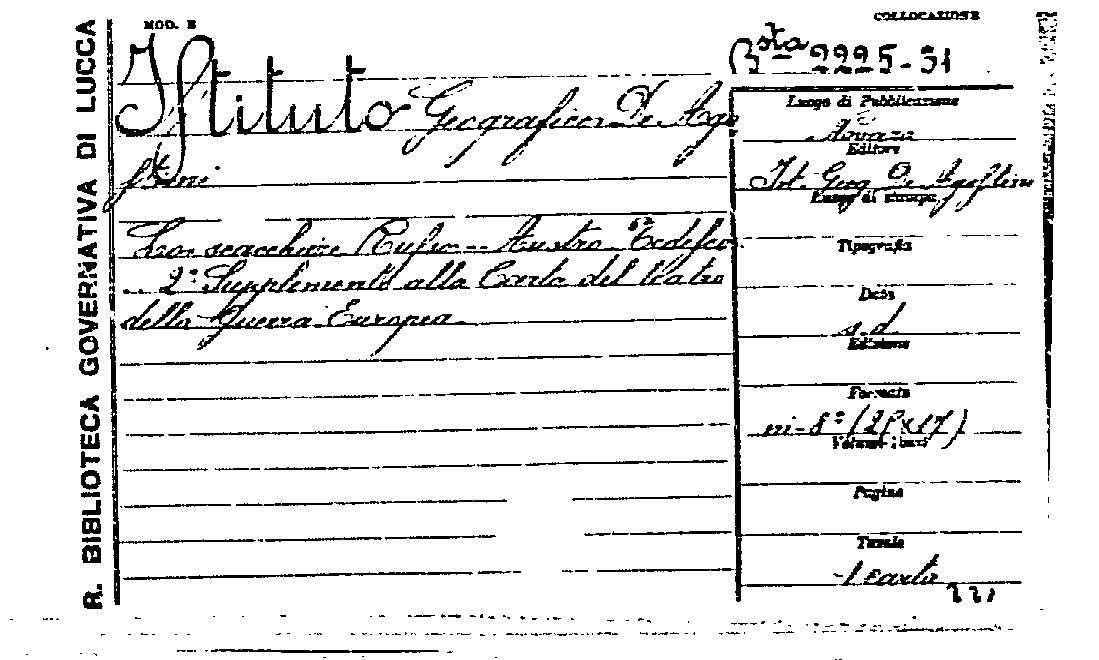 R. BIBLIOTECA GOVERNATIVA DI LUCCA
MOD. E
COLLOCAZIONE
Bsta 2225-31
Istituto Geografico De Ago
stini
Lo scacchiere Russo-Austro-Tedesco
2° Supplemento alla Carta del teatro
della Guerra Europea
Luogo di Pubblicazione
Novara
Editore
Ist. Geog. De Agostini
Luogo di stampa
Tipografia
Data
s.d.
Edizione
Formato
in-8°
Volume
Pagine
Tavole
1 carta